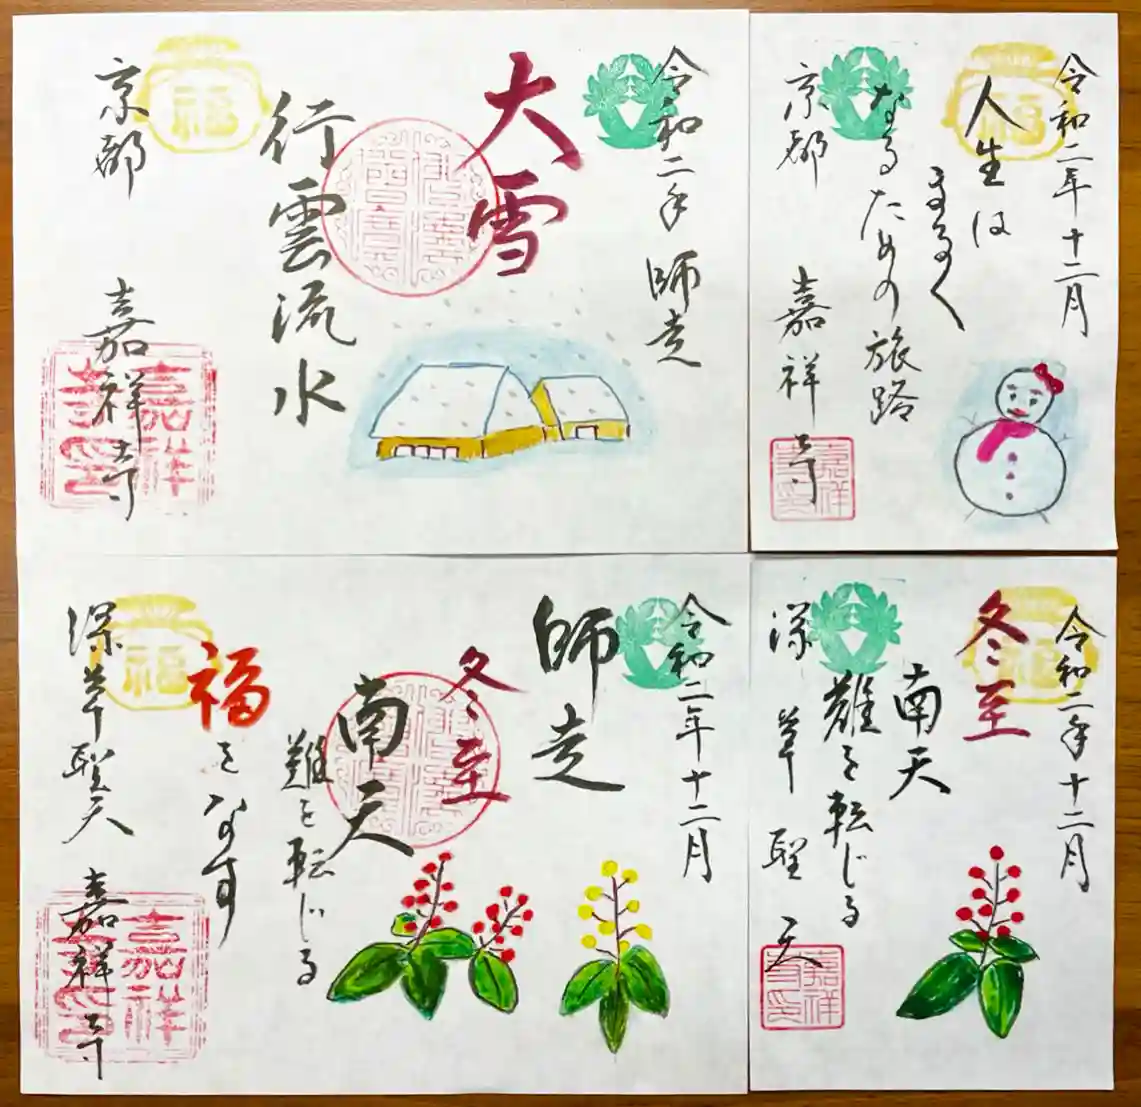 令和二年 師走
大雪
行雲流水
京都 嘉祥寺
福
嘉祥
寺印
令和二年十二月
人生は
まるく
なるための旅路
京都 嘉祥寺
福
嘉祥
寺印
令和二年十二月
師走
冬至
南天
難を転じる
福をなす
深草聖天 嘉祥寺
福
嘉祥
寺印
令和二年十二月
冬至
南天
難を転じる
深草聖天
福
嘉祥
寺印